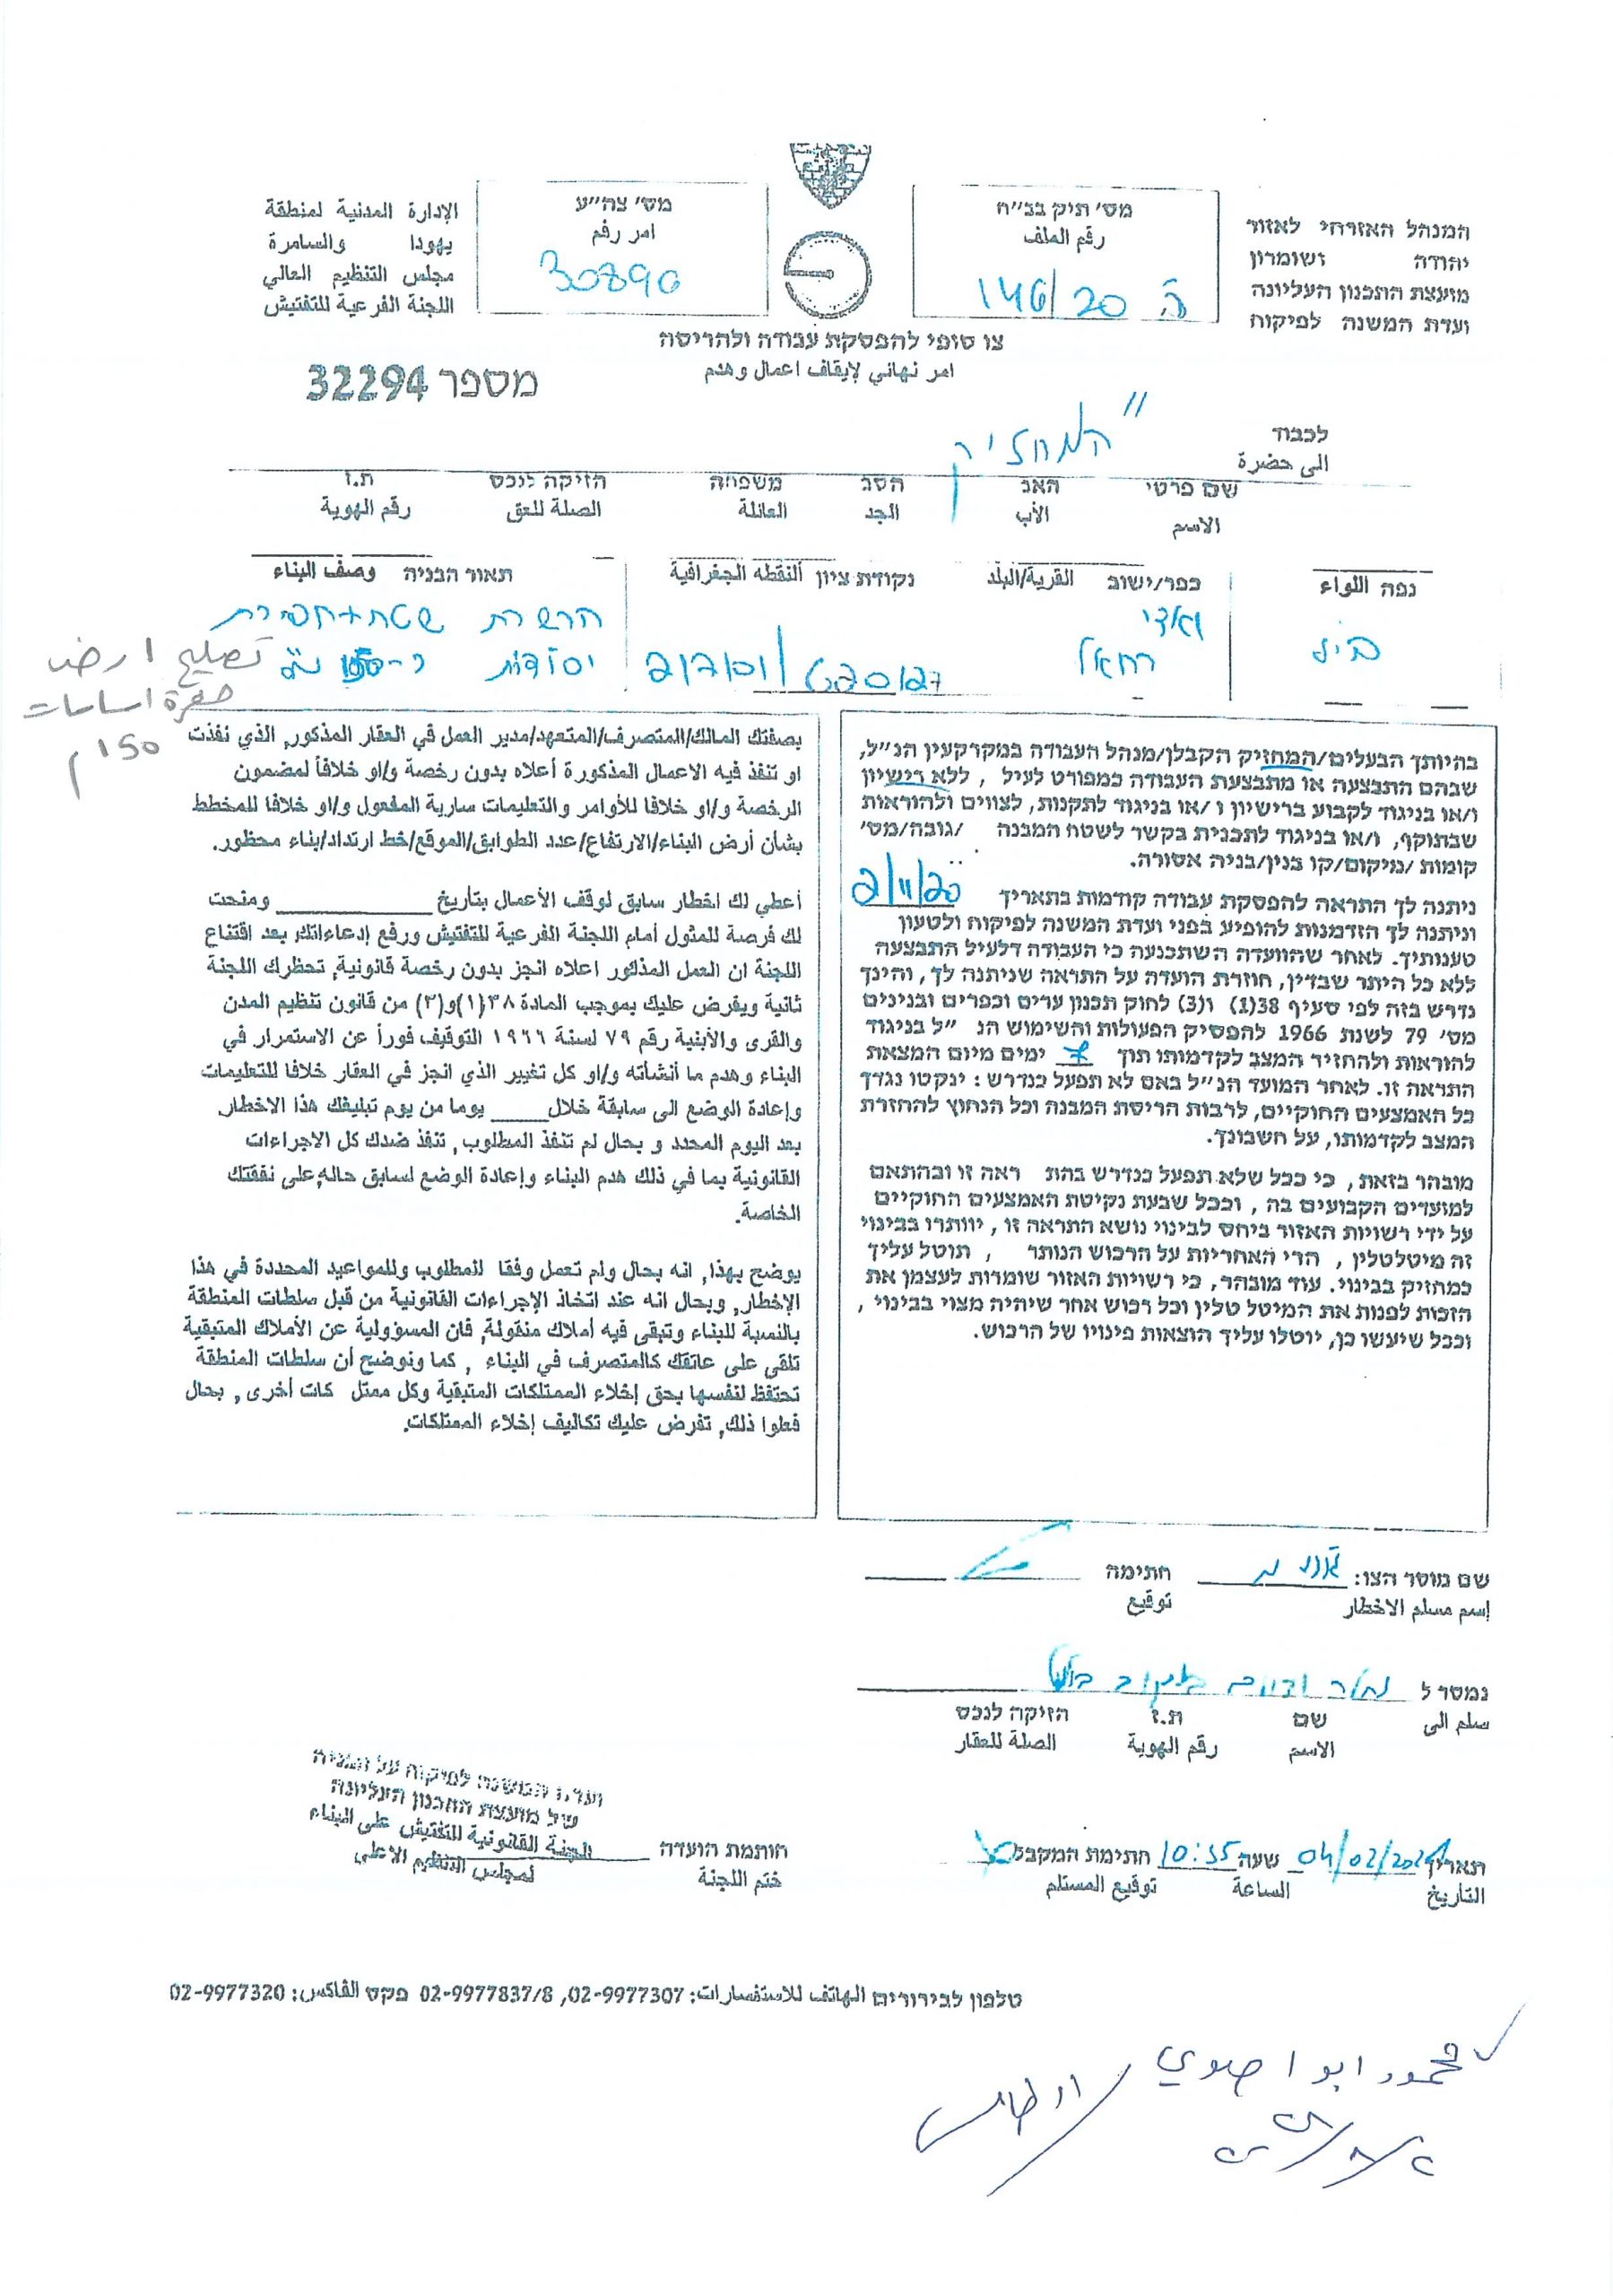 המנהל האזרחי לאזור
יהודה ושומרון
מועצת התכנון העליונה
ועדת המשנה לפיקוח
מס׳ תיק בב״ח
رقم الملف
ה 146/20
מס׳ צה״ע
امر رقم
30890
الإدارة المدنية لمنطقة
يهودا والسامرة
مجلس التنظيم العالي
اللجنة الفرعية للتفتيش
צו סופי להפסקת עבודה ולהריסה
امر نهائي لإيقاف اعمال وهدم
מספר 32294
לכבוד
الى حضرة
"המחזיק
שם פרטי האב הסב משפחה הזיקה לנכס ת.ז
الاسم الأب الجد العائلة الصلة للعق رقم الهوية
نفه اللواء
כפר/ישוב القرية/البلد
ואדי
רחאל
נקודת ציון النقطه الجغرافية
תאור הבניה وصف البناء
הכשרת שטח+חפירת
יסודות כ-150 מ"ר
تصليح ارض
حفرة اساسات
150 م
בהיותך הבעלים/המחזיק הקבלן/מנהל העבודה במקרקעין הנ״ל,
שבהם התבצעה או מתבצעת העבודה כמפורט לעיל , ללא רישיון
ו/או בניגוד לקבוע ברישיון ו /או בניגוד לתקנות, לצווים ולהוראות
שבתוקף, ו/או בניגוד לתכנית בקשר לשטח המבנה /גובה/מס׳
קומות /מיקום/קו בנין/בניה אסורה.
ניתנה לך התראה להפסקת עבודה קודמות בתאריך 2/11/20
וניתנה לך הזדמנות להופיע בפני ועדת המשנה לפיקוח ולטעון
טענותיך. לאחר שהוועדה השתכנעה כי העבודה דלעיל התבצעה
ללא כל היתר שבדין, חוזרת הועדה על התראה שניתנה לך, והינך
נדרש בזה לפי סעיף 38(1) ו(3) לחוק תכנון ערים וכפרים ובנינים
מס׳ 79 לשנת 1966 להפסיק הפעולות והשימוש הנ ״ל בניגוד
להוראות ולהחזיר המצב לקדמותו תוך 7 ימים מיום המצאת
התראה זו. לאחר המועד הנ״ל באם לא תפעל כנדרש : ינקטו נגדך
כל האמצעים החוקיים, לרבות הריסת המבנה וכל הנחוץ להחזרת
המצב לקדמותו, על חשבונך.
מובהר בזאת, כי ככל שלא תפעל כנדרש בהת ראה זו ובהתאם
למועדים הקבועים בה , וככל שבעת נקיטת האמצעים החוקיים
על ידי רשויות האזור ביחס לבינוי נושא התראה זו , יוותרו בבינוי
זה מיטלטלין , הרי האחריות על הרכוש הנותר , תוטל עליך
כמחזיק בבינוי. עוד מובהר, כי רשויות האזור שומרות לעצמן את
הזכות לפנות את המיטל טלין וכל רכוש אחר שיהיה מצוי בבינוי ,
וככל שיעשו כן, יוטלו עליך הוצאות פינויו של הרכוש.
بصفتك المالك/المتصرف/المتعهد/مدير العمل في العقار المذكور, الذي نفذت
او تنفذ فيه الاعمال المذكورة أعلاه بدون رخصة و/او خلافاً لمضمون
الرخصة و/او خلافا للأوامر والتعليمات سارية المفعول و/او خلافا للمخطط
بشأن أرض البناء/الارتفاع/عدد الطوابق/الموقع/خط ارتداد/بناء محظور.
أعطي لك اخطار سابق لوقف الأعمال بتأريخ ومنحت
لك فرصة للمثول أمام اللجنة الفرعية للتفتيش ورفع إدعاءاتك, بعد اقتناع
اللجنة ان العمل المذكور اعلاه انجز بدون رخصة قانونية, تحظرك اللجنة
ثانية ويفرض عليك بموجب المادة ٣٨(١)و(٣) من قانون تنظيم المدن
والقرى والأبنية رقم ٧٩ لسنة ١٩٦٦ التوقيف فوراً عن الاستمرار في
البناء وهدم ما أنشأته و/او كل تغيير الذي انجز في العقار خلافا للتعليمات
وإعادة الوضع الى سابقة خلال يوما من يوم تبليغك هذا الاخطار.
بعد اليوم المحدد و بحال لم تنفذ المطلوب, تنفذ ضدك كل الاجراءات
القانونية بما في ذلك هدم البناء وإعادة الوضع لسابق حاله,على نفقتك
الخاصة.
يوضح بهذا, انه بحال ولم تعمل وفقا للمطلوب وللمواعيد المحددة في هذا
الإخطار, وبحال انه عند اتخاذ الإجراءات القانونية من قبل سلطات المنطقة
بالنسبة للبناء وتتبقى فيه أملاك منقولة, فان المسؤولية عن الأملاك المتبقية
تلقى على عاتقك كالمتصرف في البناء , كما ونوضح أن سلطات المنطقة
تحتفظ لنفسها بحق إخلاء الممتلكات المتبقية وكل ممتل كات أخرى, بحال
فعلوا ذلك, تفرض عليك تكاليف إخلاء الممتلكات.
שם מוסר הצו: חתימה
إسم مسلم الاخطار توقيع
נמסר ל
سلم الى
שם ת.ז הזיקה לנכס
الاسم رقم الهوية الصلة للعقار
תאריך 04/02/202 שעה 10:35 חתימת המקבל
التأريخ الساعة توقيع المستلم
חותמת הועדה
ختم اللجنة
ועדת המשנה לפיקוח על הבניה
של מועצת התכנון העליונה
اللجنة القانونية للتفتيش على البناء
لمجلس التنظيم الاعلى
טלפון לבירורים الهاتف للاستفسارات: 02-9977307, 02-9977837/8 פקס الفاكس: 02-9977320
محمود ابو